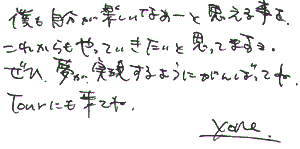 僕も自分が楽しいなあーと思える事を
これからもやっていきたいと思ってます。
ぜひ、夢が実現するようにがんばってね。
Tourにも来てね。